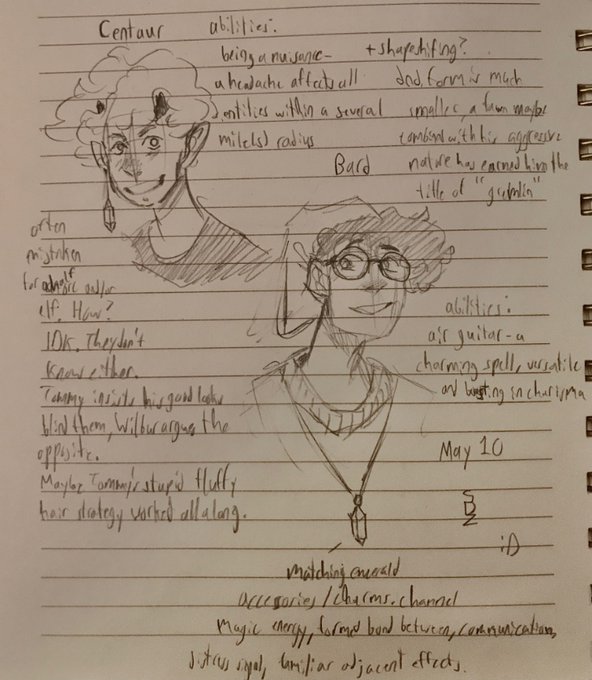 Centaur
abilities:
being a nuisance-
a headache affects all
entities within a several
mile(s) radius
+ shapeshifting?
2nd form is much
smaller, a fawn maybe
combined with his aggressive
nature has earned him the
title of "gremlin"
often
mistaken
for half orc and/or
elf. How?
IDK. They don't
know either.
Tommy insists his good looks
blind them, Wilbur argues the
opposite.
Maybe Tommy's stupid fluffy
hair strategy worked all along.
Bard
abilities:
air guitar - a
charming spell, versatile
and boosting in charisma
May 10
:D
matching emerald
accessories/charms. channel
magic energy, formed bond between, communication,
distress signal, familiar adjacent effects.